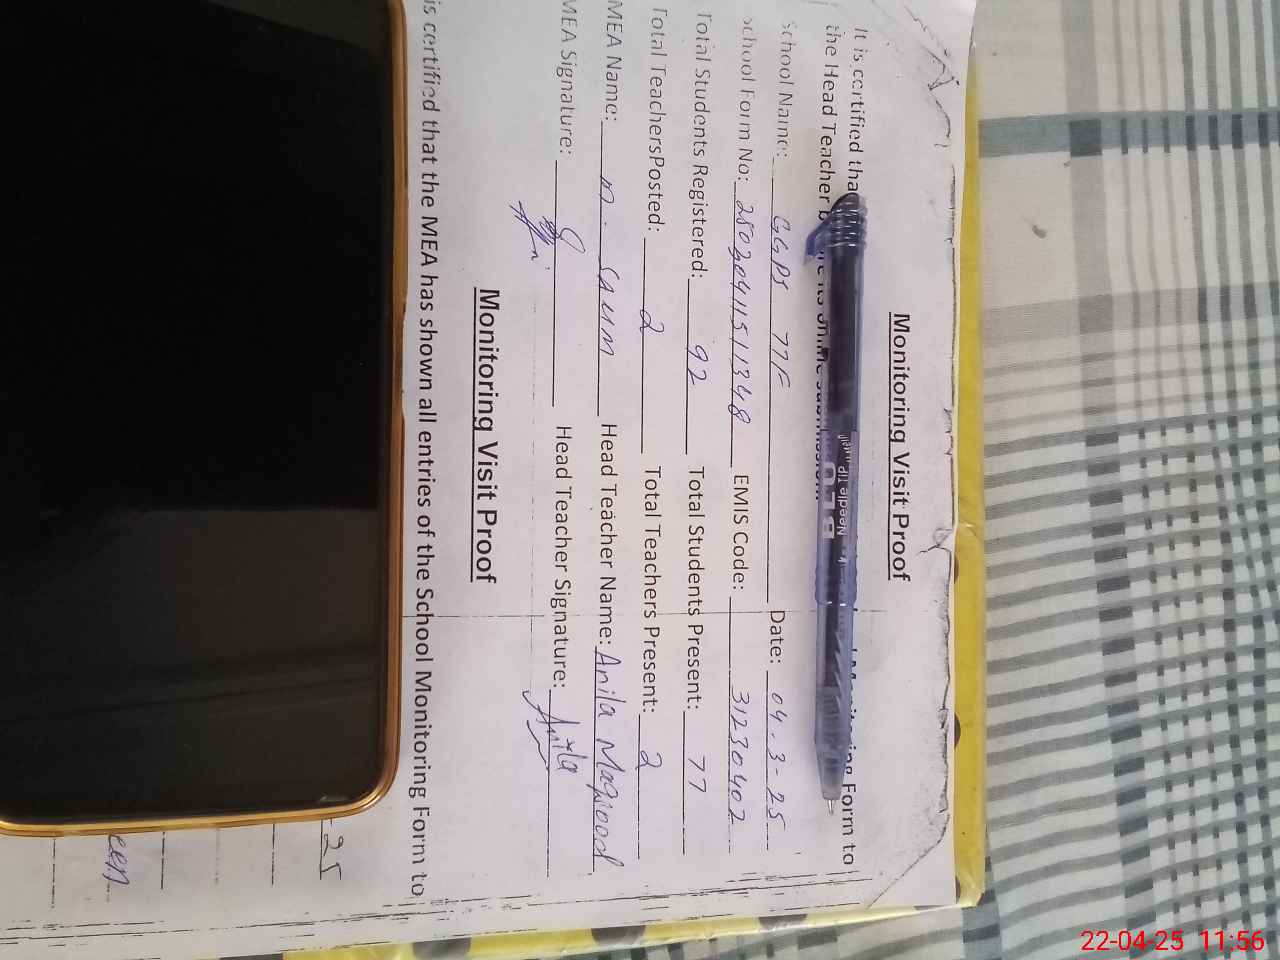 Monitoring Visit Proof
It is certified tha Form to
the Head Teacher
School Name: GGPS 77F Date: 04-3-25
School Form No: EMIS Code: 31230402
Total Students Registered: 92 Total Students Present: 77
Total TeachersPosted: 2 Total Teachers Present: 2
MEA Name: M. Head Teacher Name: Anila Maqsood
MEA Signature: Head Teacher Signature: Anila
Monitoring Visit Proof
is certified that the MEA has shown all entries of the School Monitoring Form to
25
een
Needle Tip
22-04-25 11:56